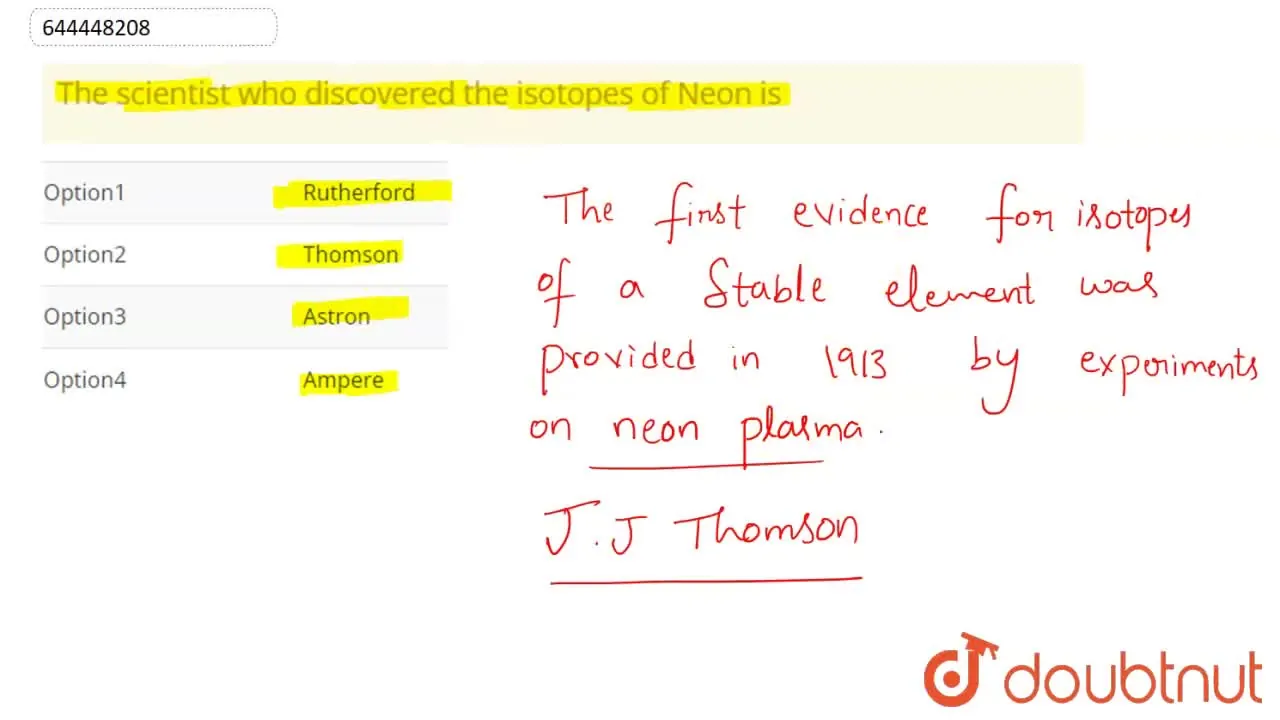 644448208
The scientist who discovered the isotopes of Neon is
Option1 Rutherford
Option2 Thomson
Option3 Astron
Option4 Ampere
The first evidence for isotopes
of a stable element was
provided in 1913 by experiments
on neon plasma.
J.J Thomson
doubtnut